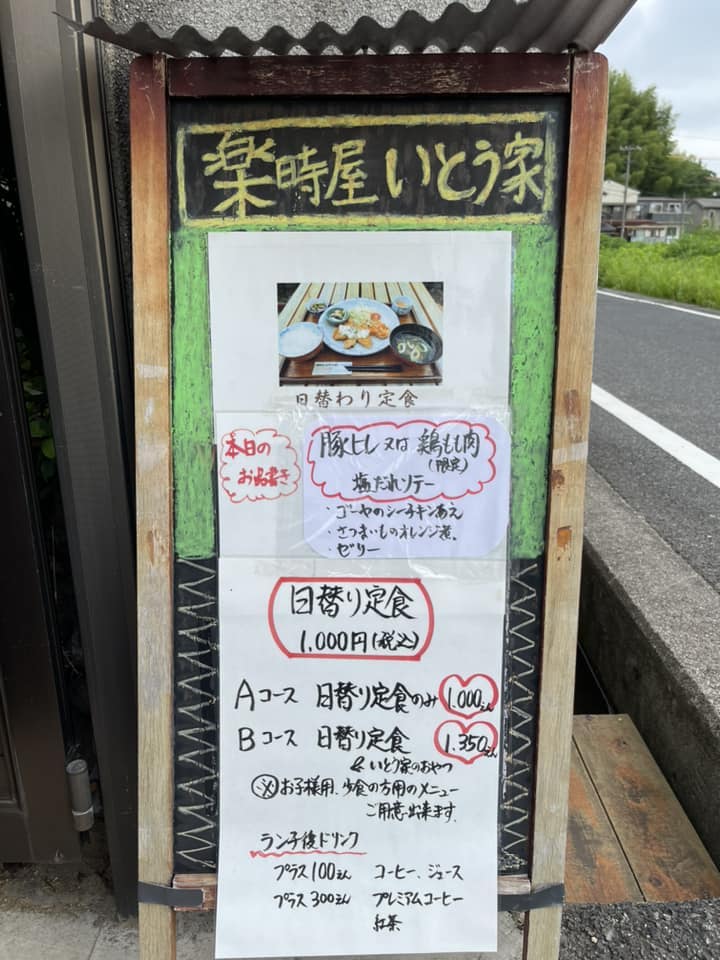 楽時屋 いとう家
日替わり定食
本日の
お品書き
豚ヒレ 又は 鶏もも肉
(限定)
塩だれソテー
・ゴーヤのシーチキンあえ
・さつまいものオレンジ煮
・ゼリー
日替り定食
1.000円(税込)
Aコース 日替り定食のみ 1.000えん
Bコース 日替り定食 1.350えん
& いとう家のおやつ
※お子様用、少食の方用のメニュー
ご用意出来ます。
ランチ後ドリンク
プラス100えん コーヒー、ジュース
プラス300えん プレミアムコーヒー
紅茶